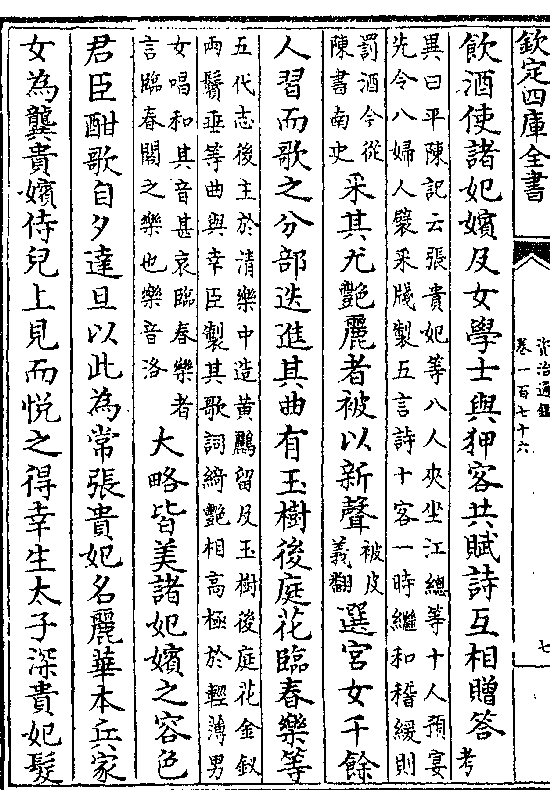 欽定四庫全書
資治通鑑
卷一百七十六
七
飲酒使諸妃嬪及女學士與狎客共賦詩互相贈答考
異曰平陳記云張貴妃等八人夾坐江總等十人預宴
先令八婦人襞采牋製五言詩十客一時繼和稽緩則
罰酒今從
陳書南史
采其尤艶麗者被以新聲被皮
義翻
選宮女千餘
人習而歌之分部迭進其曲有玉樹後庭花臨春樂等
五代志後主於清樂中造黃鸝留及玉樹後庭花金釵
兩鬢垂等曲與幸臣製其歌詞綺艶相高極於輕薄男
女唱和其音甚哀臨春樂者
言臨春閣之樂也樂音洛
大略皆美諸妃嬪之容色
君臣酣歌自夕達旦以此為常張貴妃名麗華本兵家
女為龔貴嬪侍兒上見而悅之得幸生太子深貴妃髮